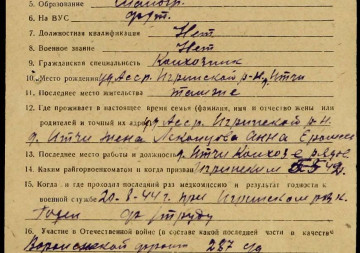 5. Образование
6. На ВУС
7. Должностная квалификация Нет
8. Военное звание Нет
9. Гражданская специальность Колхозник
10. Место рождения уд. Асср. Игринской р-н д. Итчи
11. Последнее место жительства там же
12. Где проживает в настоящее время семья (фамилия, имя и отчество жены или
родителей и точный их адрес) уд. Асср. Игринской р-н
д. Итчи жена Анна
13. Последнее место работы и должность д. Итчи Колхоз
14. Каким райгорвоенкоматом и когда призван Игринским
15. Когда и где проходил последний раз медкомиссию и результат годности к
военной службе 20-8-44 г. при Игринском
Годен
16. Участие в Отечественной войне (в составе какой последней части и в качестве
Воронежской фронт 237